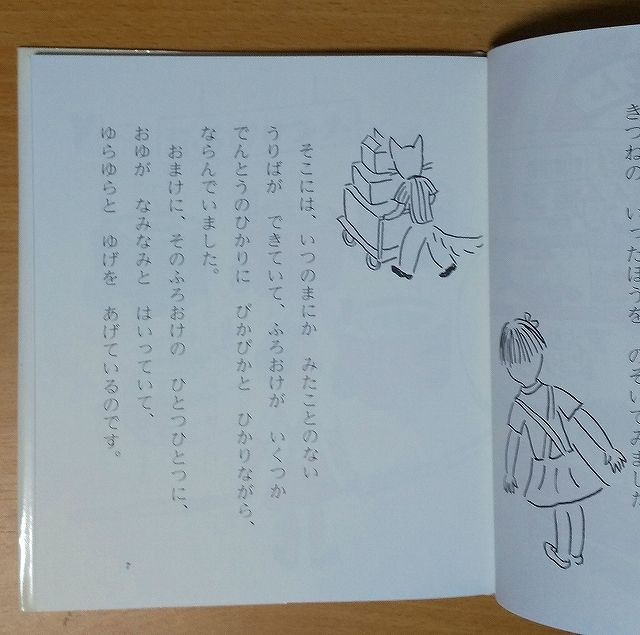 きつねの　いったほうを　のぞいてみました
そこには、いつのまにか　みたことのない
うりばが　できていて、ふろおけが　いくつか
でんとうのひかりに　ぴかぴかと　ひかりながら、
ならんでいました。
おまけに、そのふろおけの　ひとつひとつに、
おゆが　なみなみと　はいっていて、
ゆらゆらと　ゆげを　あげているのです。